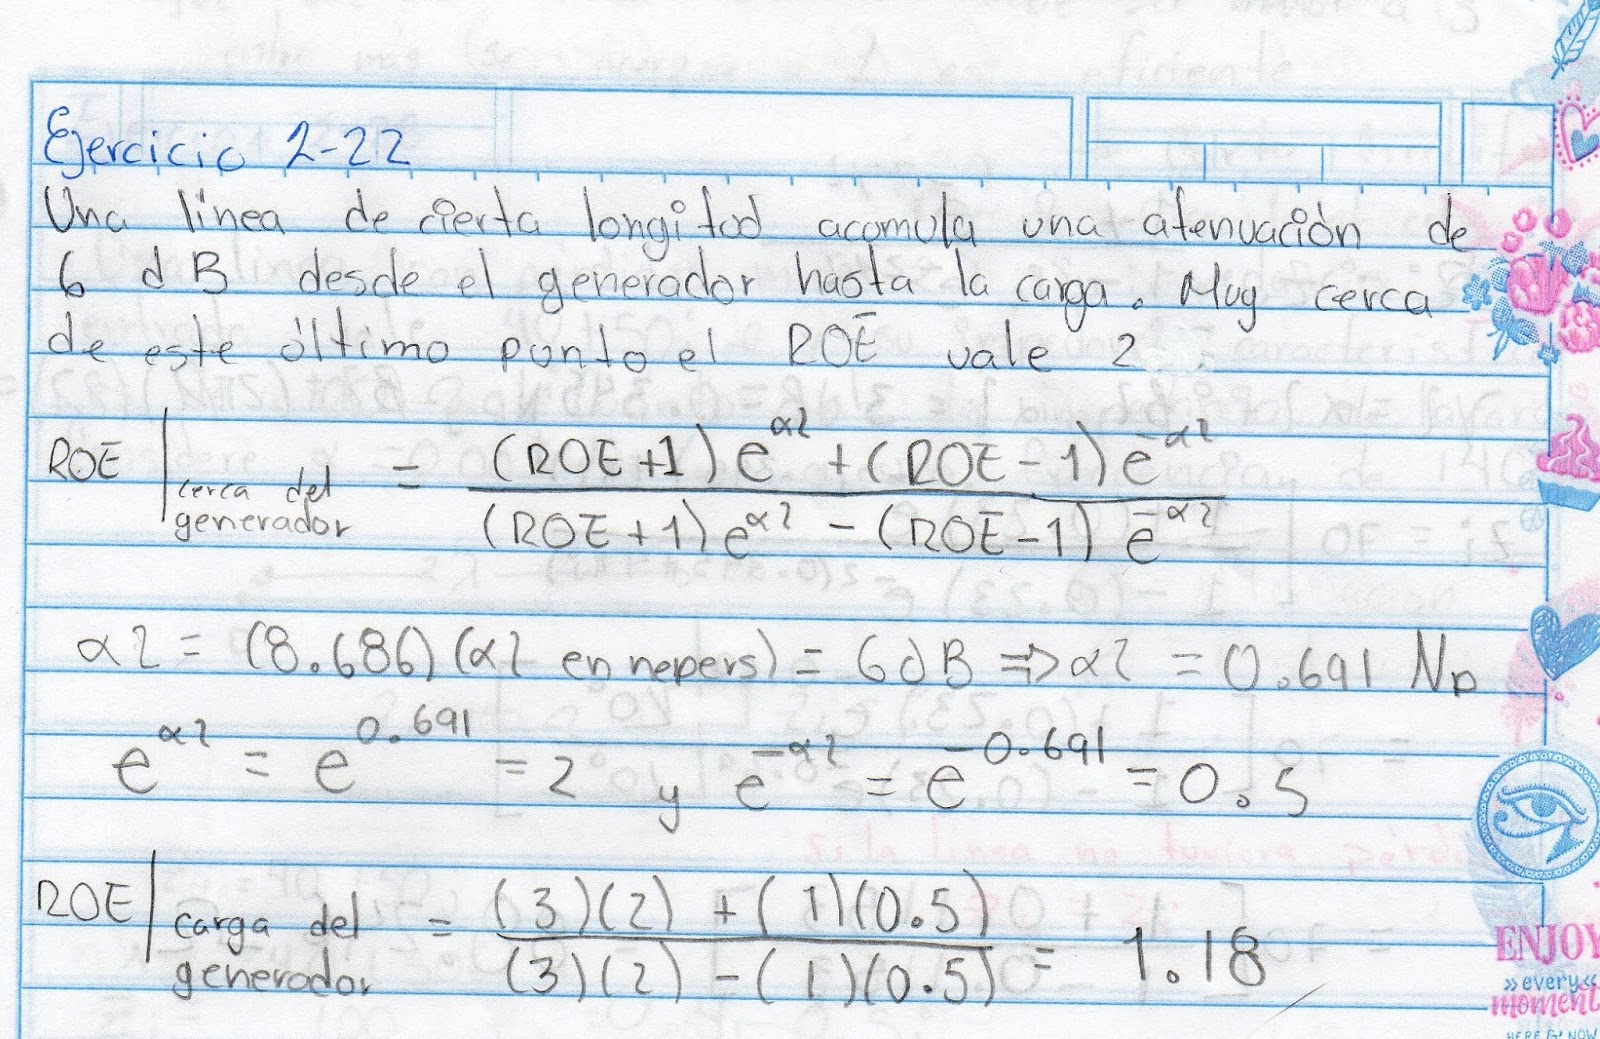 Ejercicio 2-22
Una línea de cierta longitud acumula una atenuación de
6 dB desde el generador hasta la carga. Muy cerca
de este último punto el ROE vale 2
ROE | cerca del generador = (ROE+1) e^αl + (ROE-1) e^-αl / (ROE+1) e^αl - (ROE-1) e^-αl
αl = (8.686)(αl en nepers) = 6dB => αl = 0.691 Np
e^αl = e^0.691 = 2 y e^-αl = e^-0.691 = 0.5
ROE | carga del generador = (3)(2) + (1)(0.5) / (3)(2) - (1)(0.5) = 1.18
ENJOY
»every«
moment
HERE & NOW